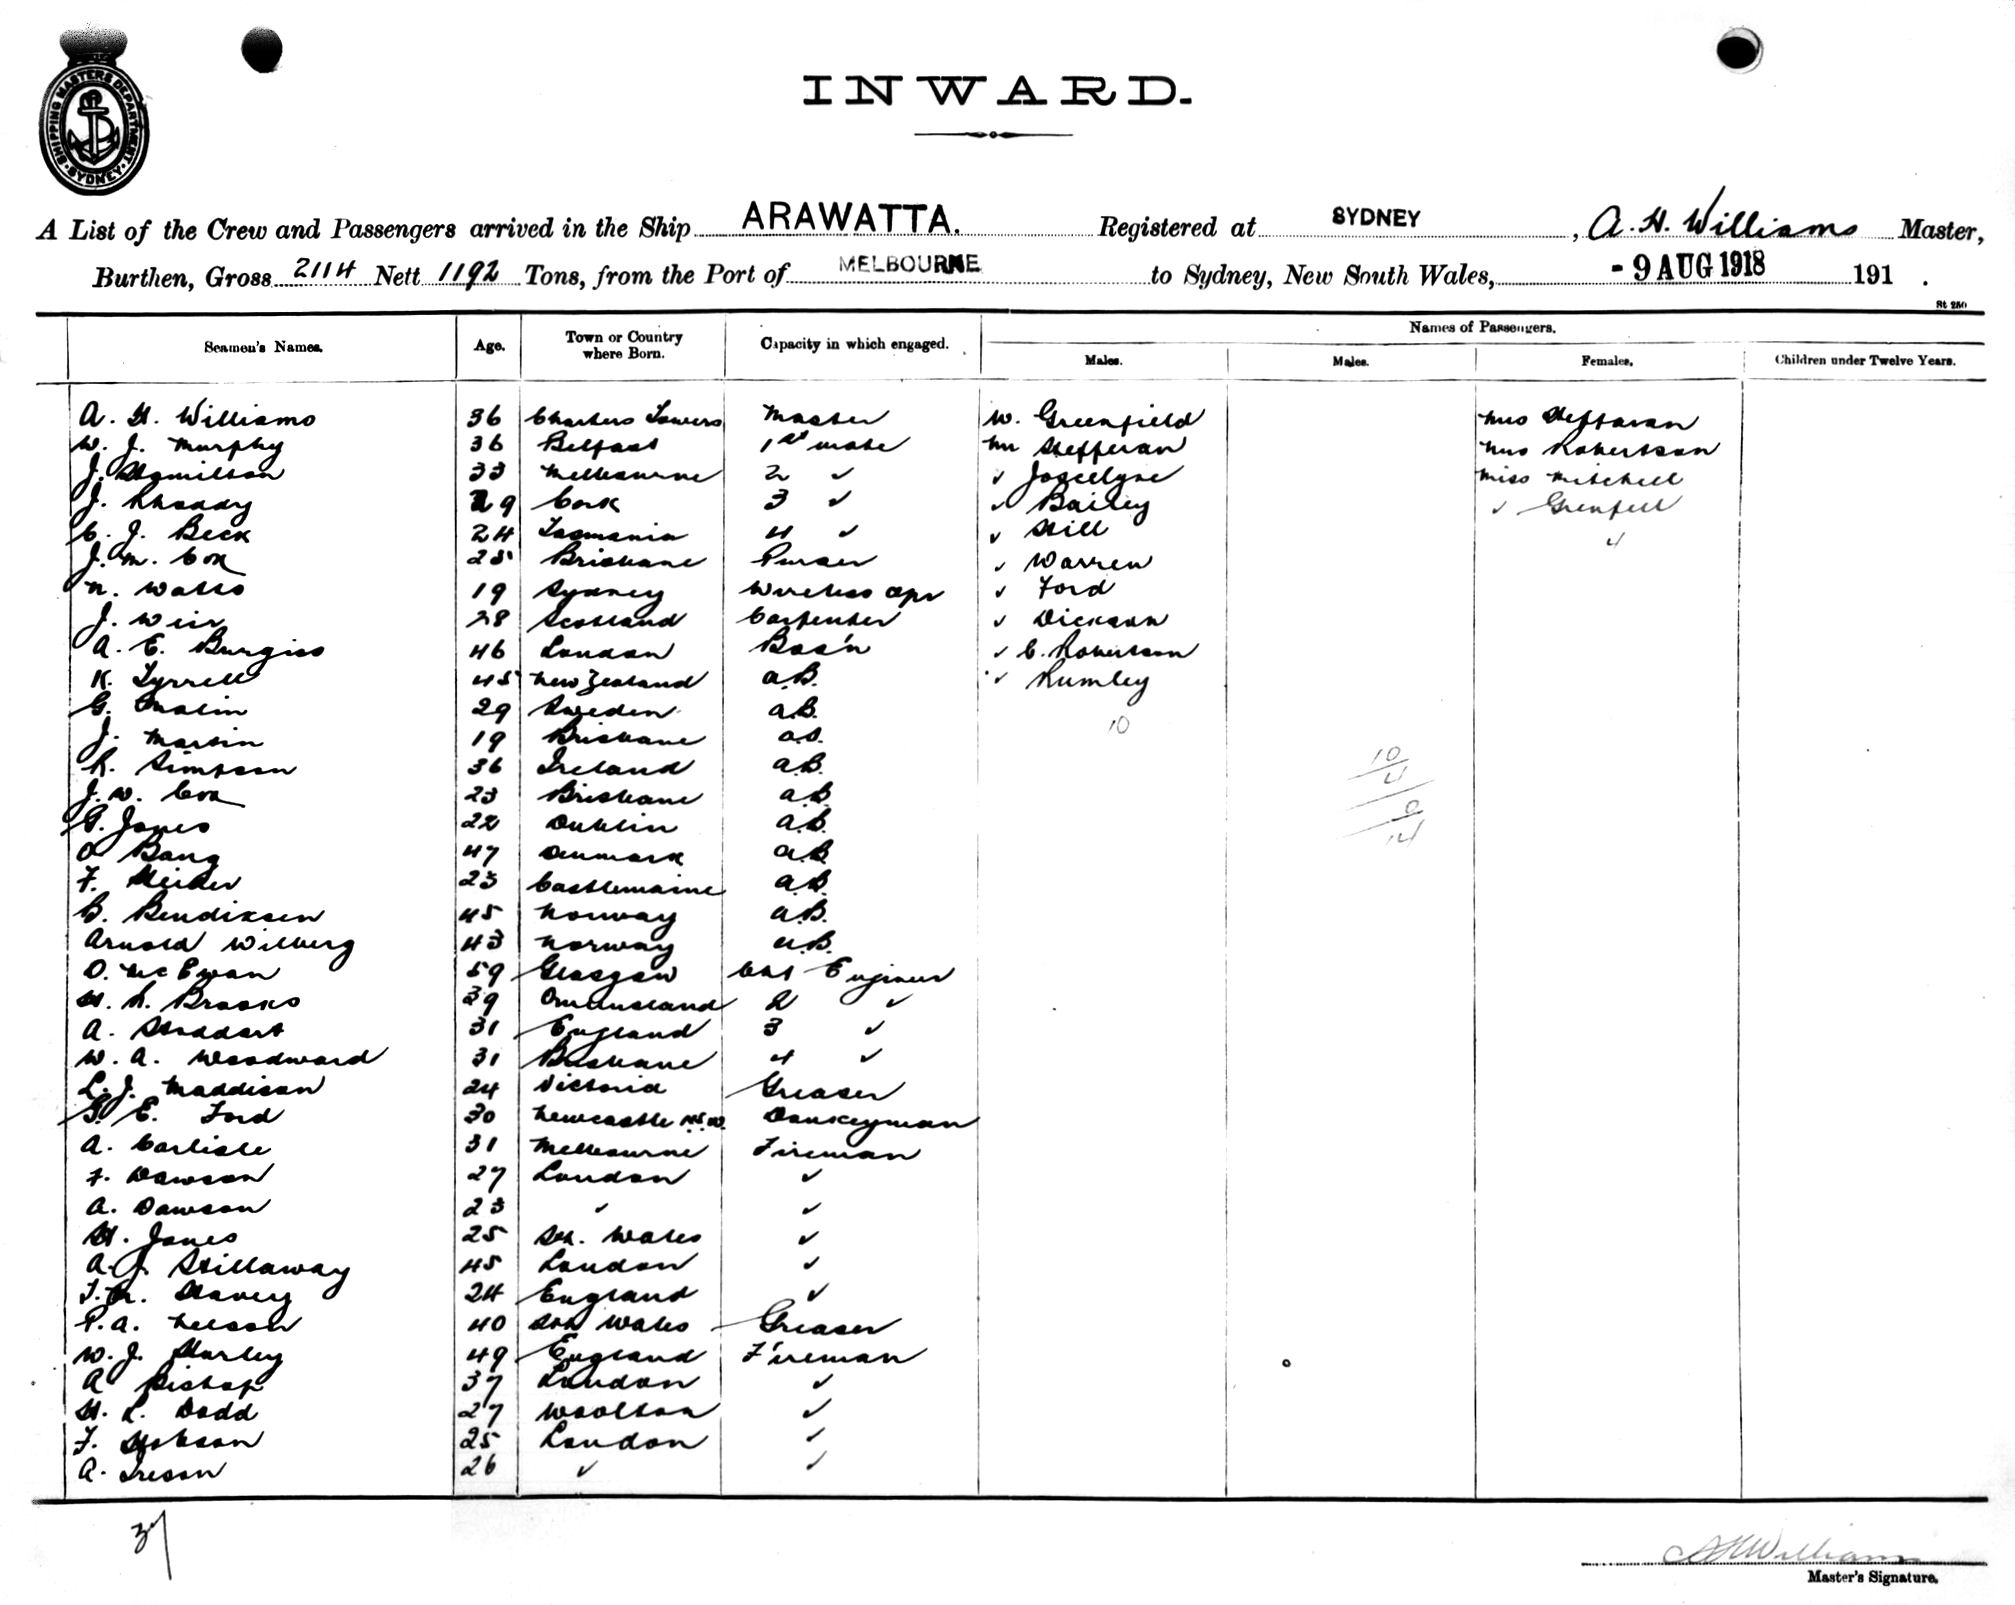 SHIPPING MASTERS DEPARTMENT
SYDNEY
INWARD.
A List of the Crew and Passengers arrived in the Ship ARAWATTA. Registered at SYDNEY, A. H. Williams Master,
Burthen, Gross 2114 Nett 1192 Tons, from the Port of MELBOURNE to Sydney, New South Wales, - 9 AUG 1918 191 .
St 250
Seamen's Names. Age. Town or Country where Born. Capacity in which engaged. Names of Passengers.
Males. Males. Females. Children under Twelve Years.
A. H. Williams 36 Charters Towers Master W. Greenfield Mrs Heffavan
W. J. Murphy 36 Belfast 1st mate Mr Hefferan Mrs Robertson
J. Hamilton 33 Melbourne 2 ✓ ✓ Joscelyne Miss Mitchell
J. Rhoddy 29 Cork 3 ✓ ✓ Bailey ✓ Grenfell
C. J. Beck 24 Tasmania 4 ✓ ✓ Hill 4
J. M. Cox 25 Brisbane Purser ✓ Warren
N. Watts 19 Sydney Wireless Opr ✓ Ford
J. Weir 28 Scotland Carpenter ✓ Dickson
A. E. Burgiss 46 London Bos'n ✓ C. Robertson
K. Tyrrell 45 New Zealand A.B. ✓ Rumley
G. Malm 29 Sweden A.B. 10
J. Martin 19 Brisbane
R. Simpson 36 Ireland A.B. 10
J. W. Cox 23 Brisbane A.B. 4
G. Jones 22 Dublin A.B. 0
Bang 47 Denmark A.B. 14
F. 23 Castlemaine A.B.
B. Bendiksen 45 Norway A.B.
Arnold Wilberg 43 Norway A.B.
D. McEwan 59 Glasgow Engineer
H. R. Brooks 39 Queensland 2 ✓
A. Stoddart 31 England 3 ✓
W. A. Woodward 31 Brisbane 4 ✓
L. J. Maddison 24 Victoria Greaser
G. E. Ford 30 Newcastle N.S.W. Donkeyman
A. Carlisle 31 Melbourne Fireman
F. Dawson 27 London ✓
A. Dawson 23 ✓ ✓
H. Jones 25 Sth. Wales ✓
A. J. Stillaway 45 London ✓
Harvey 24 England ✓
P. A. Nelson 40 Sth Wales Greaser
W. J. Harley 49 England Fireman
A Bishop 37 London ✓
H. L. Dodd 27 Woolton ✓
F. Hobson 25 London ✓
A. Treson 26 ✓ ✓
37
A H Williams
Master's Signature.